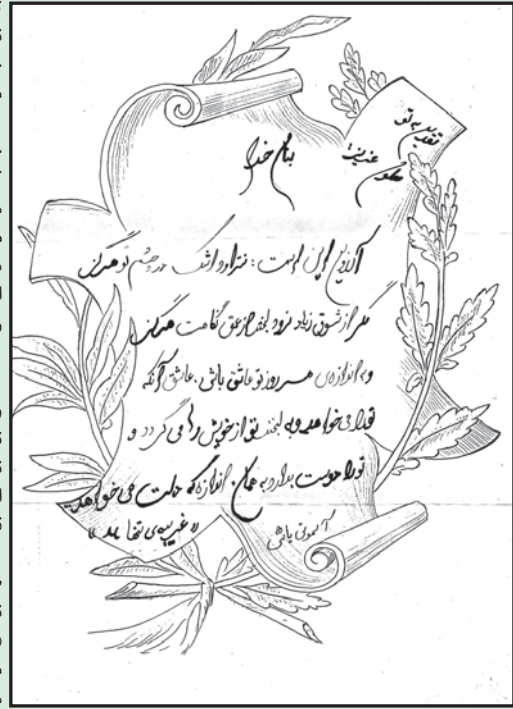 تقدیم به تو
بنام خدا
آرزویم این است: نتراود اشک در چشم تو هرگز
مگر از شوق زیاد نرود لبخند از عمق نگاهت هرگز
و به اندازه‌ی هر روز تو عاشق باشی، عاشق آنکه
تو را می‌خواهد و به لبخند تو از خویش رها می‌گردد و
تو را دوست بدارد به همان اندازه که دلت می‌خواهد
«غریبه‌ی تنها»